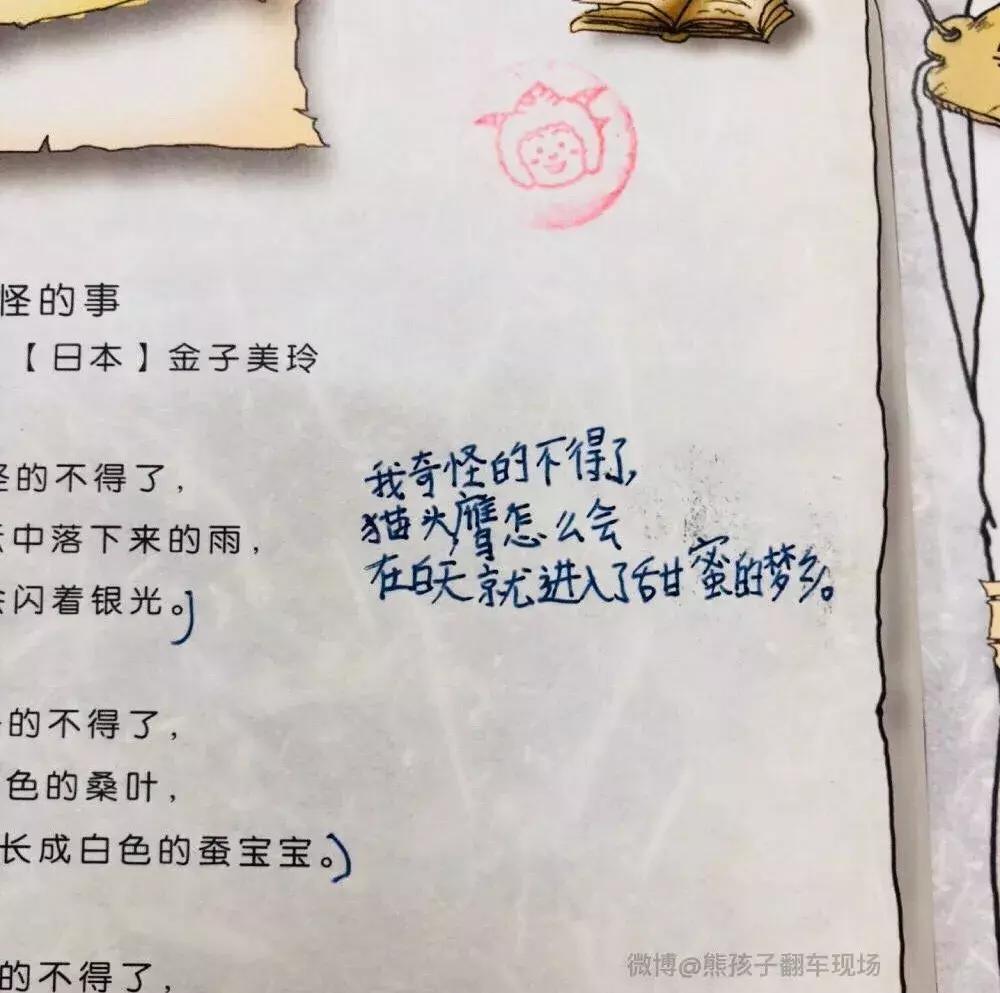 怪的事
【日本】金子美玲
怪的不得了,
中落下来的雨,
闪着银光。
我奇怪的不得了,
猫头鹰怎么会
在白天就进入了甜蜜的梦乡。
的不得了,
色的桑叶,
长成白色的蚕宝宝。
的不得了,
微博@熊孩子翻车现场